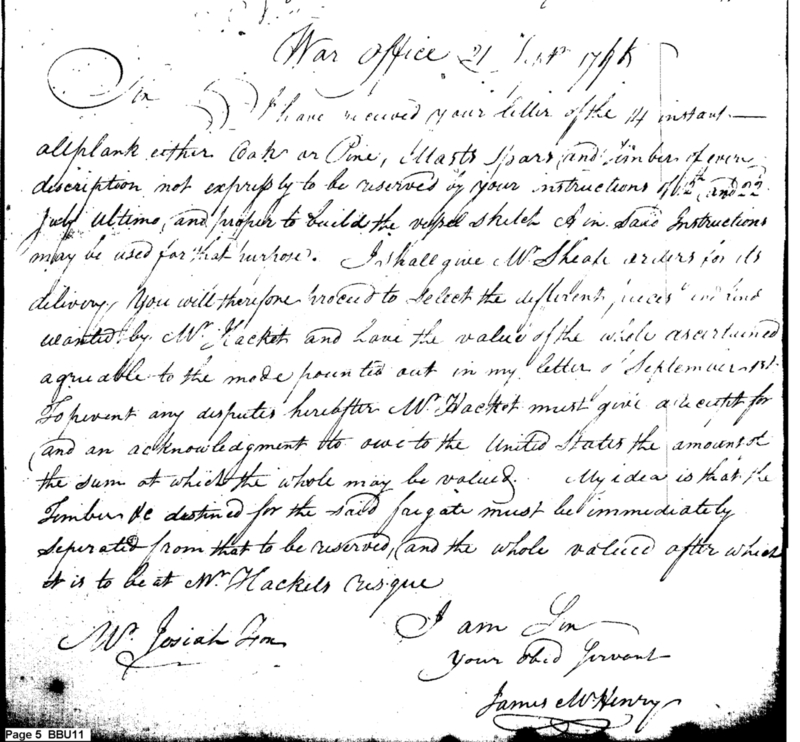 War Office 21 Sept 179
Sir
I have received your letter of the 14 instant—
all plank either Oak or Pine, Masts Spars and timber of every
discription not expressly to be reserved by your instructions of 12th and 22
July Ultimo, and proper to build the vessel sketch A in said Instructions
may be used for that purpose. I shall give Mr Sheafe orders for its
delivery, You will therefore proceed to select the different pieces and kind
wanted by Mr Hacket and have the value of the whole ascertained
agreable to the mode pointed out in my letter of September 1st.
To prevent any disputes hereafter Mr Hacket must give a receipt for
and an acknowledgment to owe to the United States the amount of
the sum at which the whole may be valued. My idea is that the
Timber &c destined for the said frigate must be immediately
seperated from that to be reserved, and the whole valued after which
it is to be at Mr Hackets risque
I am Sir
Mr. Josiah Fox
Your obed Servant
James McHenry
Page 5 BBU11